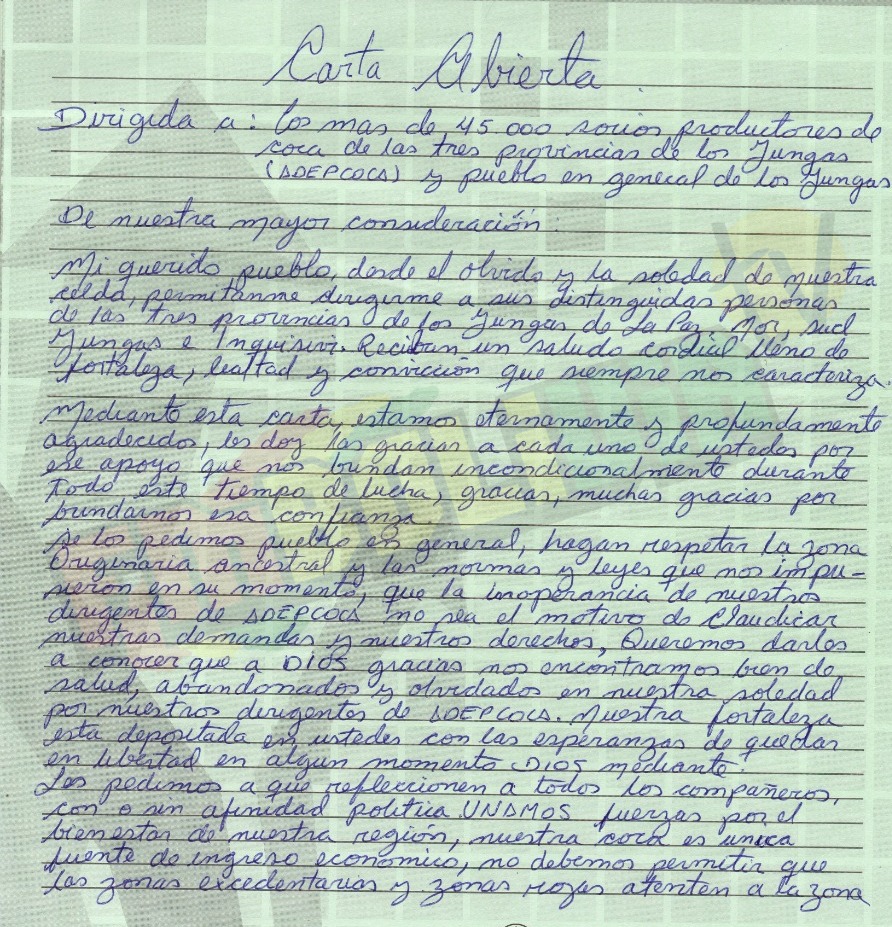 Carta Abierta.
Dirigida a: Los mas de 45.000 socios productores de
coca de las tres provincias de los Yungas
(ADEPCOCA) y pueblo en general de los Yungas
De nuestra mayor consideración:
Mi querido pueblo, desde el olvido y la soledad de nuestra
celda, permitanme dirigirme a sus distinguidas personas
de las tres provincias de los Yungas de La Paz. Nor, sud
Yungas e Inquisivi. Reciban un saludo cordial lleno de
fortaleza, lealtad y convicción que siempre nos caracteriza.
Mediante esta carta, estamos eternamente y profundamente
agradecidos, les doy las gracias a cada uno de ustedes por
ese apoyo que nos brindan incondicionalmente durante
todo este tiempo de lucha, gracias, muchas gracias por
brindarnos esa confianza.
Se los pedimos pueblo en general, hagan respetar la zona
Originaria ancestral y las normas y leyes que nos impu-
sieron en su momento, que la inoperancia de nuestros
dirigentes de ADEPCOCA no sea el motivo de Claudicar
nuestras demandas y nuestros derechos, Queremos darles
a conocer que a DIOS gracias nos encontramos bien de
salud, abandonados y olvidados en nuestra soledad
por nuestros dirigentes de ADEPCOCA. Nuestra fortaleza
esta depositada en ustedes con las esperanzas de quedar
en libertad en algun momento DIOS mediante.
Les pedimos a que refleccionen a todos los compañeros,
con o sin afinidad politica UNAMOS fuerzas por el
bienestar de nuestra región, nuestra coca es unica
fuente de ingreso economico, no debemos permitir que
las zonas excedentarias y zonas rojas atenten a la zona